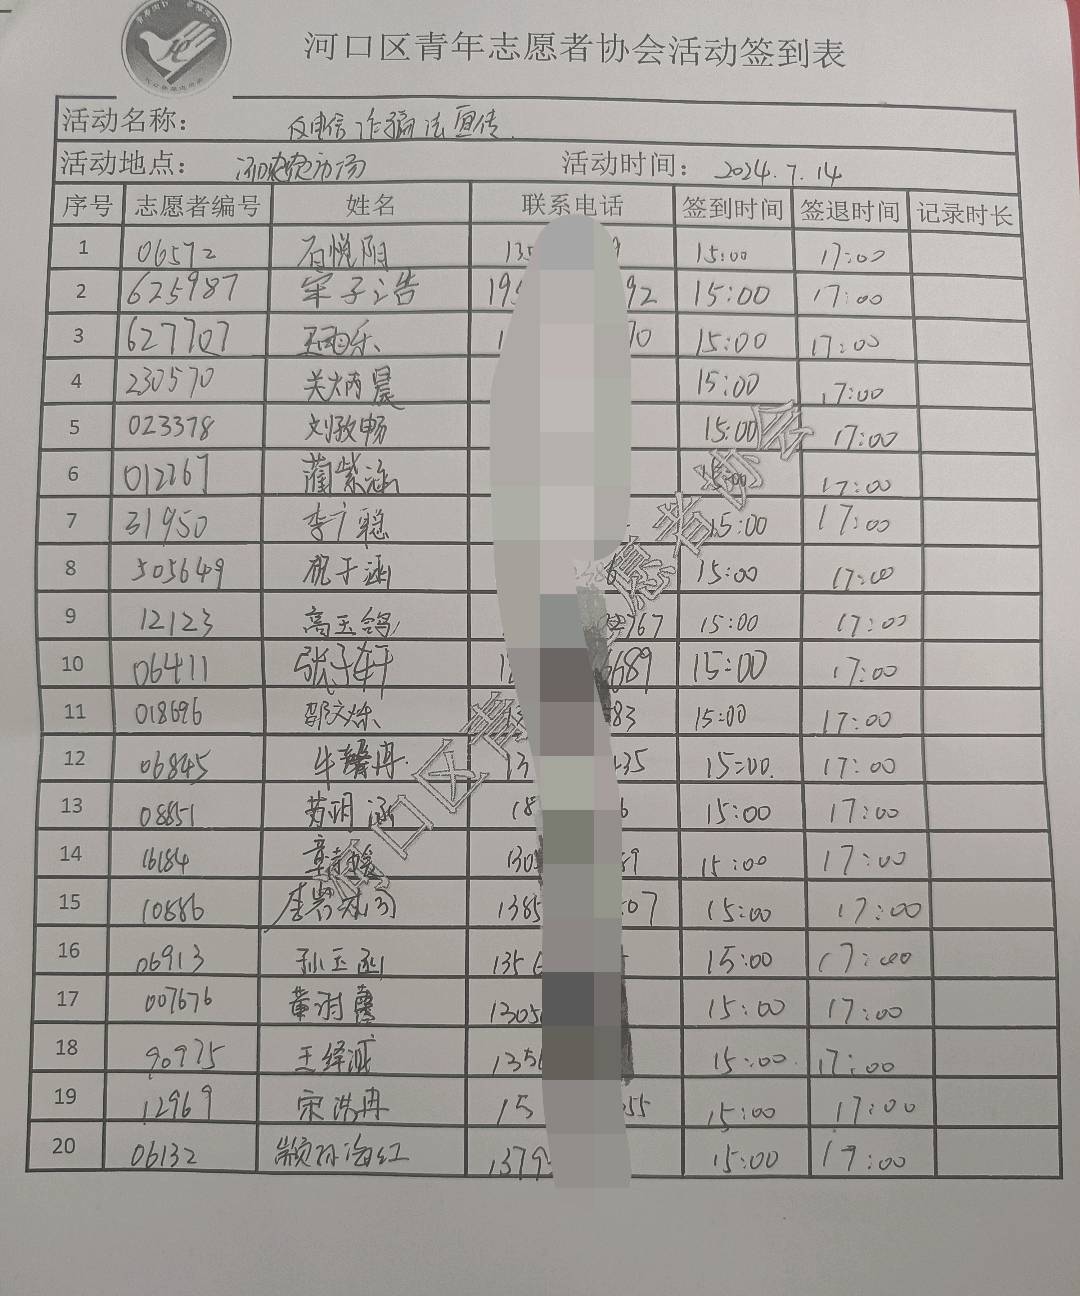 河口区青年志愿者协会活动签到表
活动名称： 反电信诈骗法宣传
活动地点： 活动时间： 2024.7.14
序号 志愿者编号 姓名 联系电话 签到时间 签退时间 记录时长
1 06572 石悦阳 135 9 15:00 17:00
2 625987 子浩 19 92 15:00 17:00
3 627707 王雨乐 1 70 15:00 17:00
4 230570 关炳晨 15:00 17:00
5 023378 刘政畅 15:00 17:00
6 012267 蔺紫涵 15:00 17:00
7 31950 李广聪 15:00 17:00
8 505649 祝于涵 6 15:00 17:00
9 12123 高玉鸽 767 15:00 17:00
10 06411 张子轩 1 6689 15:00 17:00
11 018696 郭文烁 13 83 15:00 17:00
12 06845 牛馨冉 13 435 15:00 17:00
13 08851 苏玥涵 18 6 15:00 17:00
14 16184 130 39 15:00 17:00
15 10886 1385 07 15:00 17:00
16 06913 孙玉函 1356 15:00 17:00
17 007676 董 1305 15:00 17:00
18 90975 王绎 1356 15:00 17:00
19 12969 宋浩冉 15 55 15:00 17:00
20 06132 颛孙海红 1379 15:00 17:00
河口区青 愿者协会